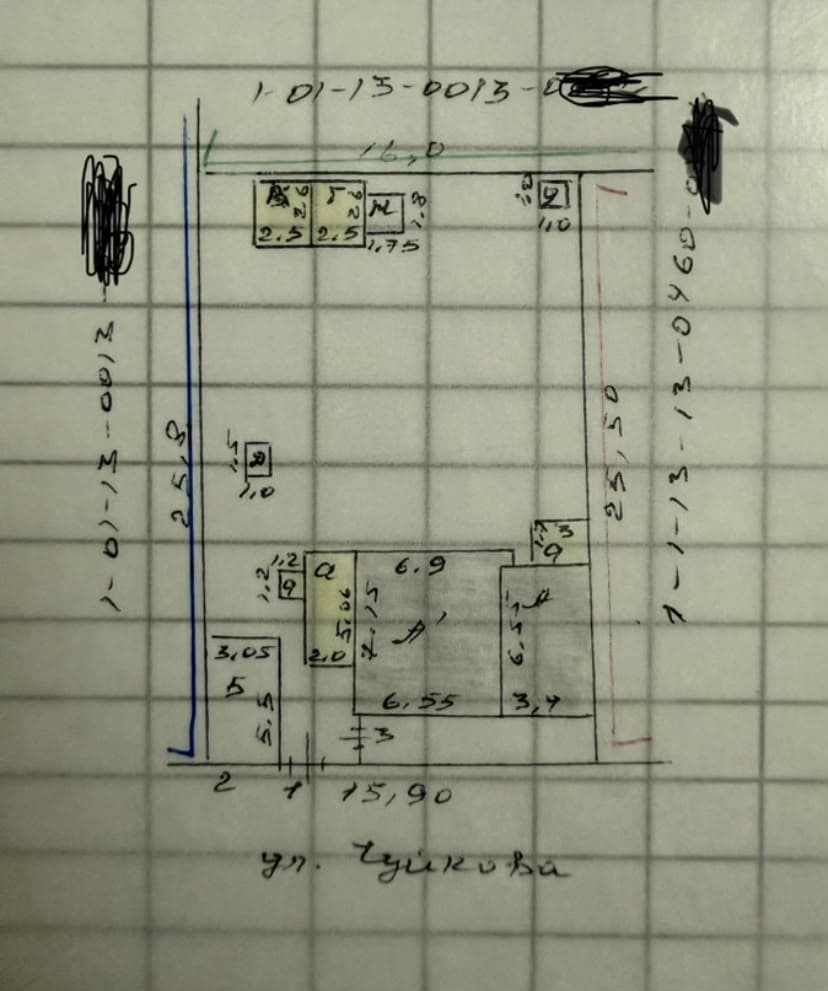 1-01-13-0013-0
16,0
2.6
2.6
1.8
2.5
2.5
1,75
1,0
1-01-13-0013
1-1-13-13-0460-0
25,8
25,50
1.5
1,0
1,2
1,2
a
5.06
2.0
6.9
7.15
A'
6.55
6.5
A
3,4
3,05
5
5.5
3
2
1
15,90
ул. Чуйкова